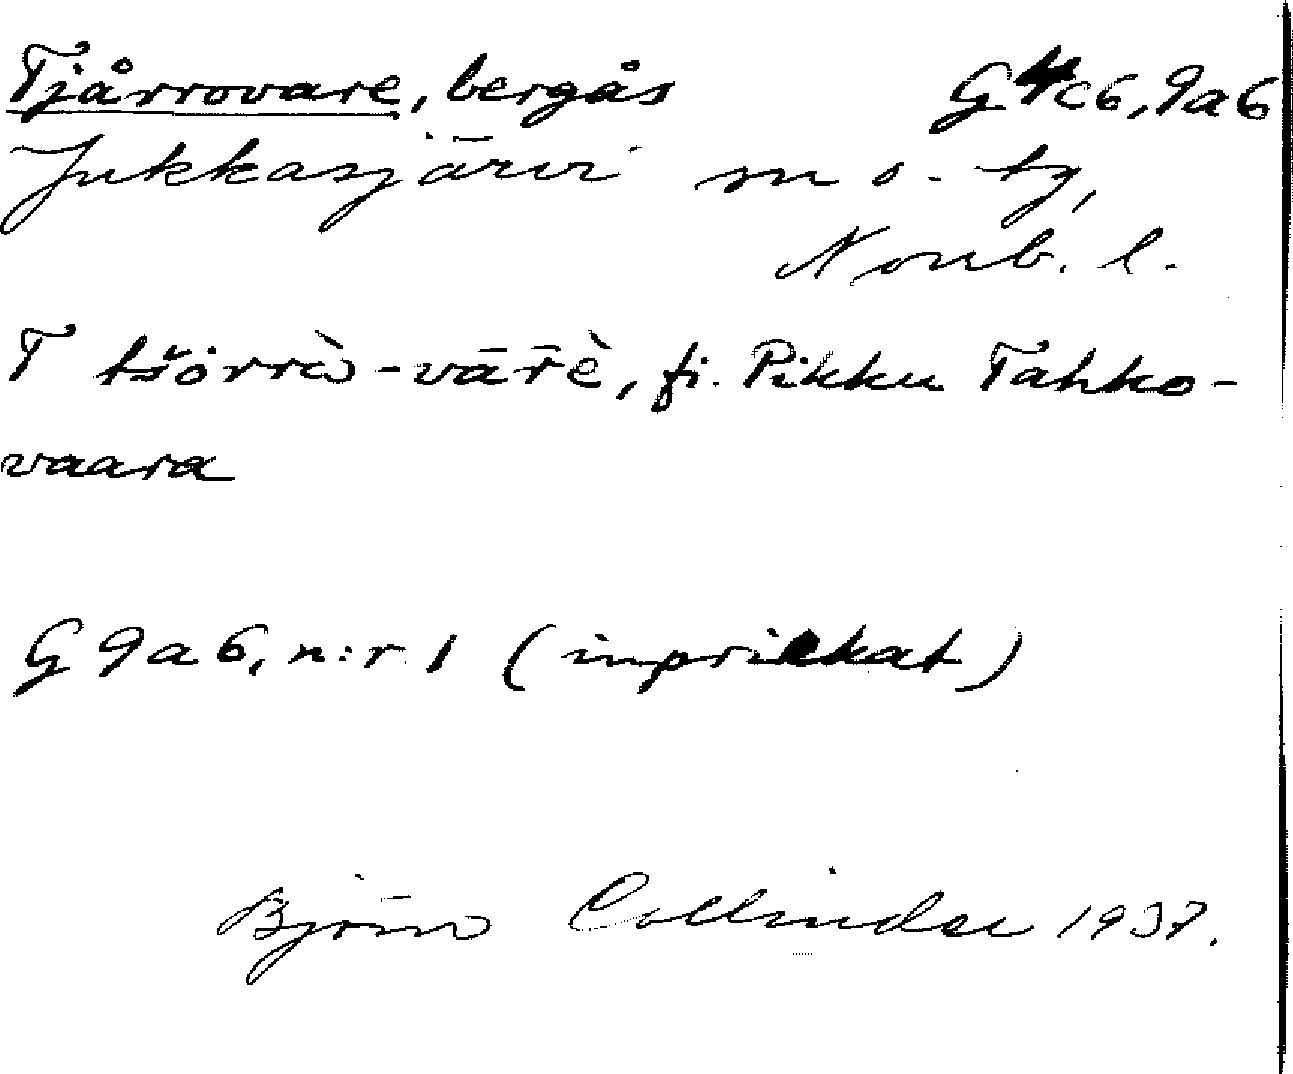 Tjårrovare, bergås G4c6, 9a6
Jukkasjärvi sn o. tg,
Norrb. l.
T tšårrὼ-vār̄ὲ, fi. Pikku Tahko-
vaara
G 9a6, n:r 1 (inprickat)
Björn Collinder 1937.